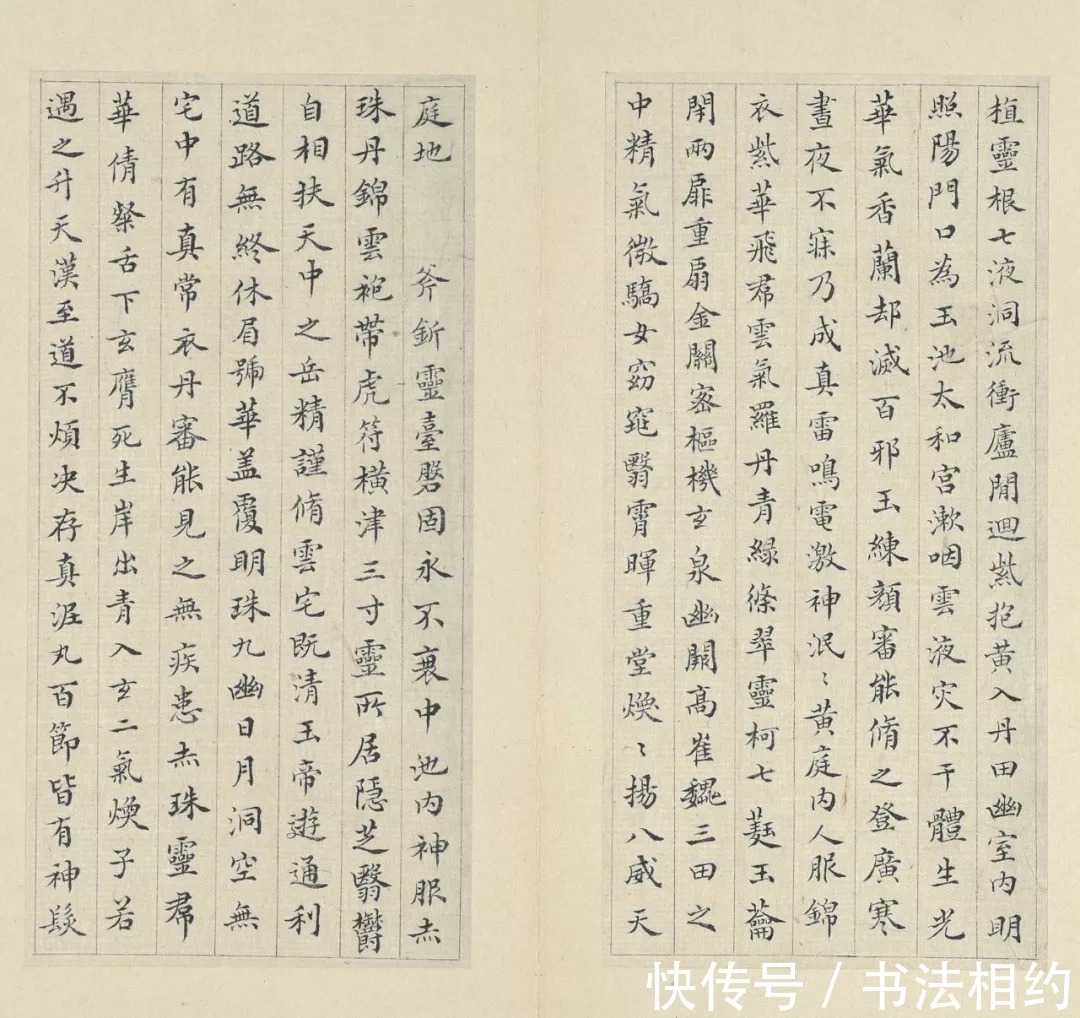 植靈根七液洞流衝廬間迴紫抱黃入丹田幽室內明
照陽門口為玉池太和宮漱咽雲液灾不干體生光
華氣香蘭却滅百邪玉練顏審能脩之登廣寒
晝夜不寐乃成真雷鳴電激神泯〻黃庭內人服錦
衣紫華飛帬雲氣羅丹青緑絛翠靈柯七蕤玉蘥
閇兩扉重扇金關密樞機玄泉幽闕高崔巍三田之
中精氣微驕女窈窕翳霄暉重堂煥〻揚八威天
庭地斧釿靈臺磐固永不衰中池內神服赤
珠丹錦雲袍帶虎符橫津三寸靈所居隱芝翳鬱
自相扶天中之岳精謹脩雲宅既清玉帝遊通利
道路無終休眉號華盖覆明珠九幽日月洞空無
宅中有真常衣丹審能見之無疾患赤珠靈帬
華倩粲舌下玄膺死生岸出青入玄二氣煥子若
遇之升天漢至道不煩决存真泥丸百節皆有神髮
快传号 / 书法相约